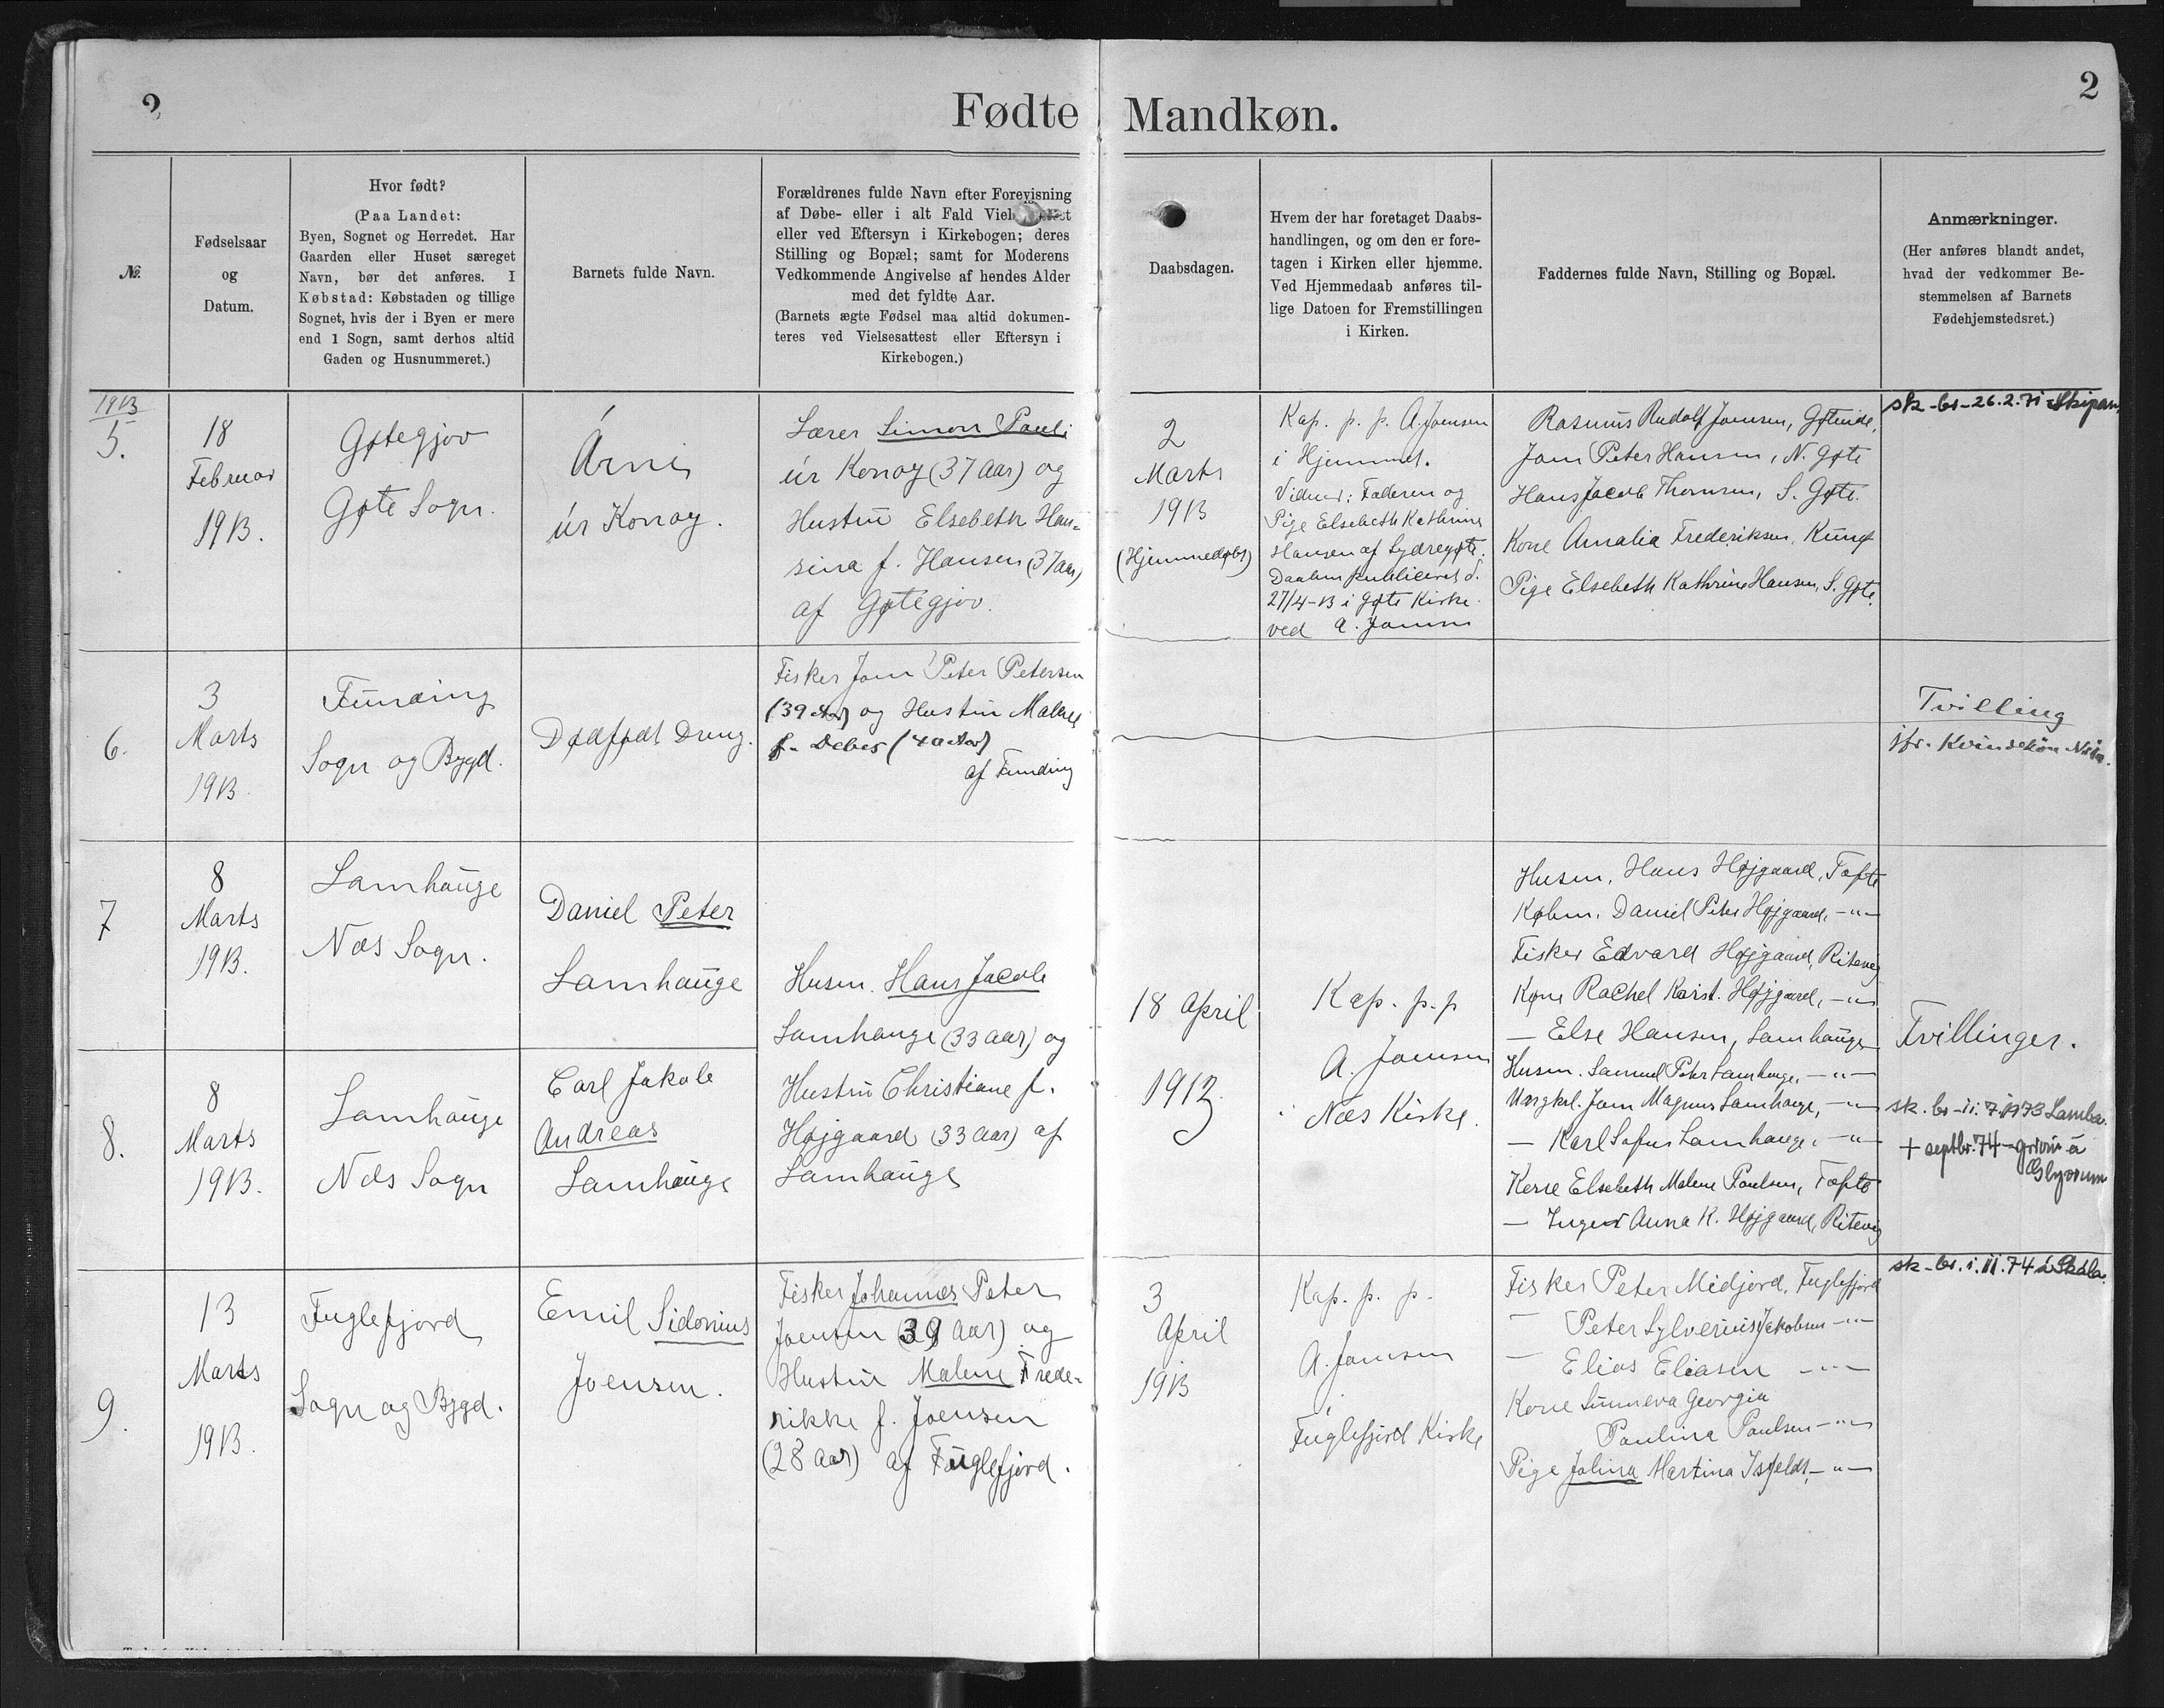 2
Fødte
Mandkøn.
2
№.
Fødselsaar
og
Datum.
Hvor født?
(Paa Landet:
Byen, Sognet og Herredet. Har
Gaarden eller Huset særeget
Navn, bør det anføres. I
Købstad: Købstaden og tillige
Sognet, hvis der i Byen er mere
end 1 Sogn, samt derhos altid
Gaden og Husnummeret.)
Barnets fulde Navn.
Forældrenes fulde Navn efter Forevisning
af Døbe- eller i alt Fald
eller ved Eftersyn i Kirkebogen; deres
Stilling og Bopæl; samt for Moderens
Vedkommende Angivelse af hendes Alder
med det fyldte Aar.
(Barnets ægte Fødsel maa altid dokumen-
teres ved Vielsesattest eller Eftersyn i
Kirkebogen.)
Daabsdagen.
Hvem der har foretaget Daabs-
handlingen, og om den er fore-
tagen i Kirken eller hjemme.
Ved Hjemmedaab anføres til-
lige Datoen for Fremstillingen
i Kirken.
Faddernes fulde Navn, Stilling og Bopæl.
Anmærkninger.
(Her anføres blandt andet,
hvad der vedkommer Be-
stemmelsen af Barnets
Fødehjemstedsret.)
1913
5.
18
Februar
1913.
Gøtegjov
Gøte Sogn.
Árni
úr Konoy.
Lærer Simon Pauli
úr Konoy (37 Aar) og
Hustru Elsebeth Han=
sina f. Hansen (37 Aar)
af Gøtegjov.
2
Marts
1913
(Hjemmedøbt)
Kap. p. p. A. Joensen
i Hjemmet.
Vidner: Faderen og
Pige Elsebeth Kathrine
Hansen af Sydregøte.
Daaben publiceret d.
27/4-13 i Gøte Kirke
ved A. Joensen
Rasmus Rudolf Joensen,
Joen Peter Hansen, N. Gøte
Hans Jacob Thomsen, S. Gøte.
Kone Amalia Frederiksen,
Pige Elsebeth Kathrine Hansen, S. Gøte.
sk-br-26.2.71
6.
3
Marts
1913.
Funding
Sogn og Bygd.
Dødfødt Dreng.
Fisker Joen Peter Petersen
(39 Aar) og Hustru Malene
f. Debes (40 Aar)
af Funding
Tvilling
jfr. Kvindekøn
7
8
Marts
1913.
Lamhauge
Næs Sogn.
Daniel Peter
Lamhauge
Husm. Hans Jacob
Lamhauge (33 Aar) og
Hustru Christiane f.
Højgaard (33 Aar) af
Lamhauge
18 April
1913.
Kap. p. p
A. Joensen
i Næs Kirke.
Husm. Hans Højgaard, Tofte
Købm. Daniel Peter Højgaard, -"-
Fisker Edvard Højgaard, Ritevig
Kone Rachel Karst. Højgaard, -"-
— Else Hansen, Lamhauge
Husm. Samuel Peter Lamhauge, -"-
Ungkl. Joen Magnus Lamhauge, -"-
— Karl Sofus Lamhauge, -"-
Kone Elsebeth Malene Poulsen, Tofte
— Inger Anna K. Højgaard, Ritevig
Tvillinger.
8.
8
Marts
1913.
Lamhauge
Næs Sogn
Carl Jakob
Andreas
Lamhauge
sk. br-11.7.1973 Lamba.
+ septbr. 74 - grivin á
Glyvrum
9.
13
Marts
1913.
Fuglefjord
Sogn og Bygd.
Emil Sidonius
Joensen.
Fisker Johannes Peter
Joensen (39 Aar) og
Hustru Malene Frede=
rikke f. Joensen
(28 Aar) af Fuglefjord.
3
April
1913
Kap. p. p.
A. Joensen
i
Fuglefjord Kirke
Fisker Peter Midjord, Fuglefjord
— Peter Sylverius Jakobsen -"-
— Elias Eliasen -"-
Kone Sunneva Georgia
Paulina Poulsen -"-
Pige Jolina Martina Isfeldt, -"-
sk-br. 1.11.74 í Skála.